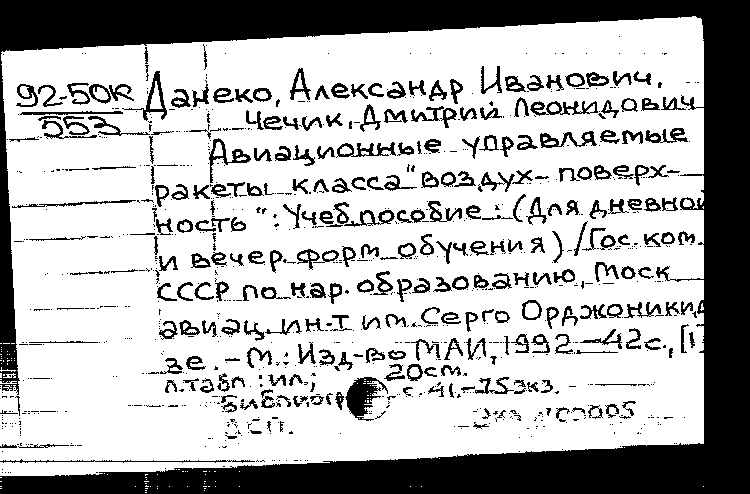 92-50К
553
Данеко, Александр Иванович.
Чечик, Дмитрий Леонидович
Авиационные управляемые
ракеты класса "воздух-поверх-
ность": Учеб. пособие: (Для дневной
и вечер. форм обучения) / Гос. ком.
СССР по нар. образованию, Моск
авиац. ин-т им. Серго Орджоникид
зе. - М.: Изд-во МАИ, 1992. - 42 с., [1]
л. табл.: ил.; 20 см.
Библиогр с. 41. - 75 экз.
ДСП.